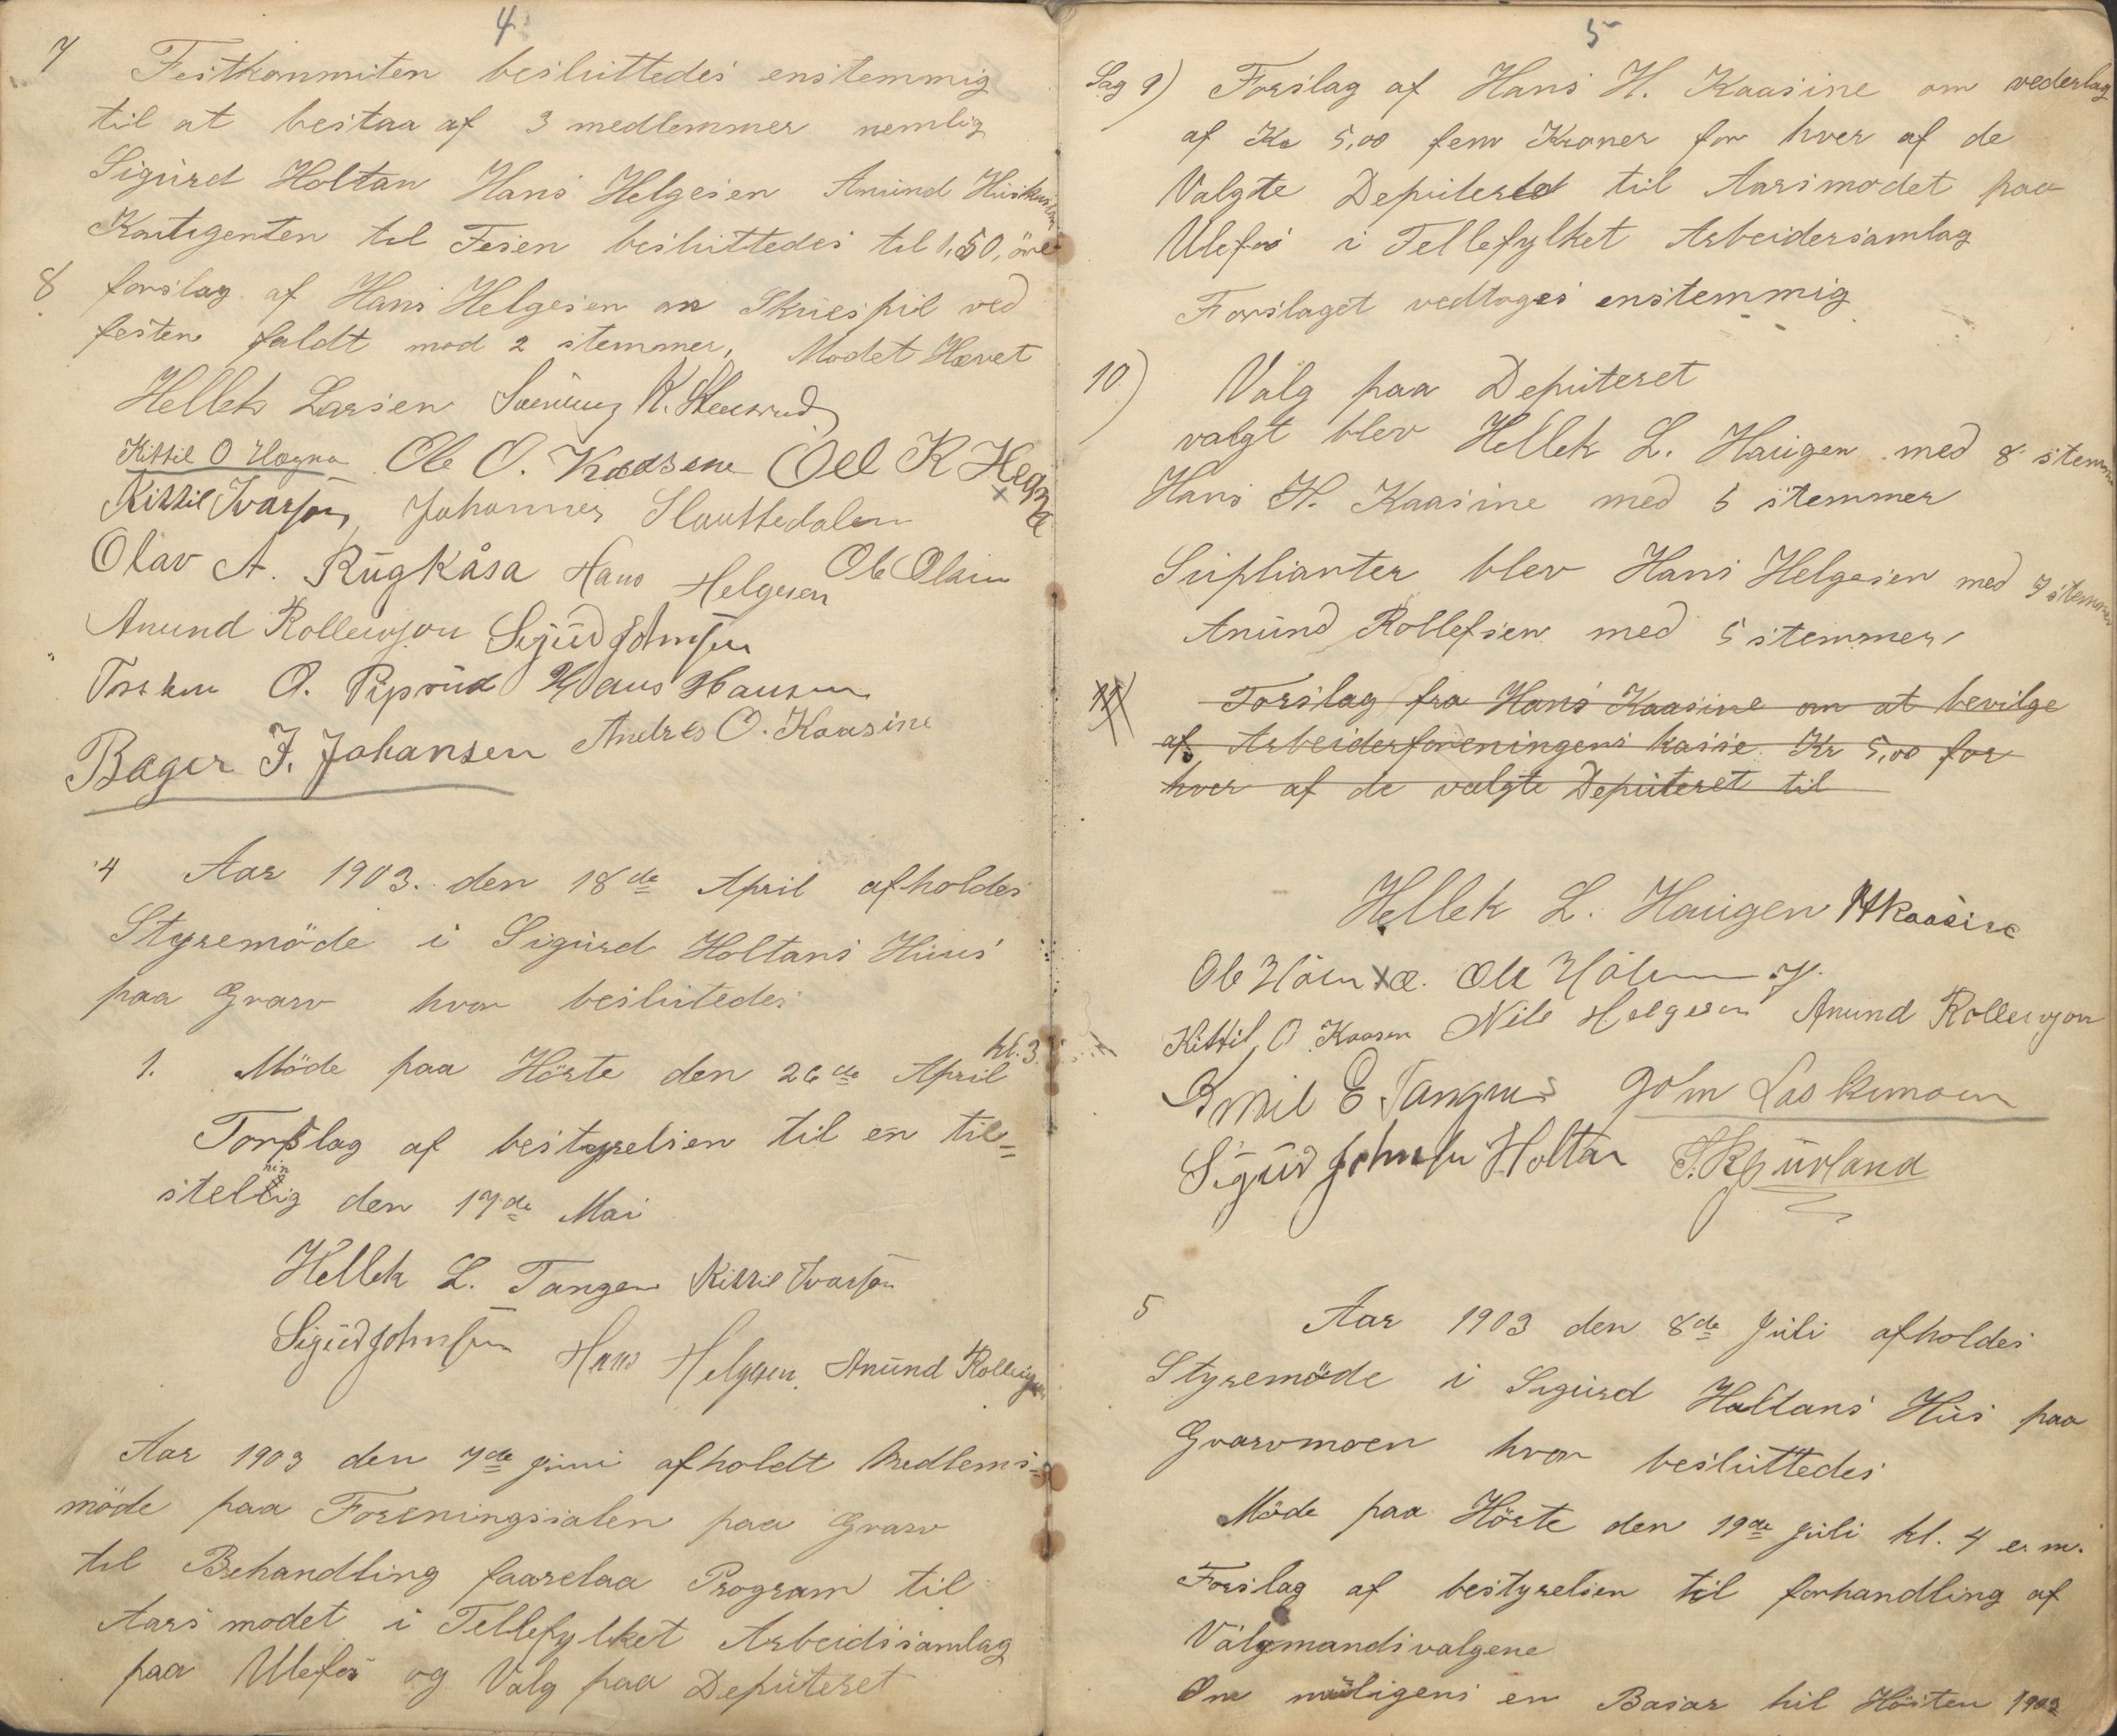 4
7 Festkommiten besluttedes enstemmig
til at bestaa af 3 medlemmer nemlig
Sigurd Holtan Hans Helgesen Anund
Kontigenten til Feien besluttedes til 1,50, öre
8 forslag af Hans Helgesen om Skuespil ved
festen faldt mod 2 stemmer, Modet Hævet
Hellek Larsen K. Stensrud
Kittil O Hagna Ole O. Kaasene Oel K Hegna
Kittil Ivarson, Johannes Slaattedalen
Olav A. Rugkåsa Hans Helgesen Ole Olsen
Anund Rolleivson Sigurd Johnsen
O. Piprud Hans Hansen
Bager J. Johansen Andres O. Kaasine
4 Aar 1903. den 18de April afholdes
Styremöde i Sigurd Holtans Huus
paa Gvarv hvor beslutedes
1. Möde paa Hörte den 26de April kl. 3
Forslag af bestyrelsen til en til=
stelning den 17de Mai
Hellek L. Tangen Kittil Ivarson
Sigurd Johnsen Hans Helgesen Anund Rolleivson
Aar 1903 den 7de juni afholdt Medlems=
möde paa Foreningsialen paa Gvarv
til Behandling faarelaa Program til
Aarsmodet i Tellefylket Arbeidssamlag
paa Ulefos og Valg paa Deputeret
5
Sag 9) Forslag af Hans H. Kaasine om vederlag
af Kr 5,00 fem Kroner for hver af de
Valgte Deputered til Aarsmodet paa
Ulefos i Tellefylket Arbeidersamlag
Forslaget vedtoges enstemmig
10) Valg paa Deputeret
valgt blev Hellek L. Haugen med 8 stemmer
Hans H. Kaasine med 5 stemmer
Suplianter blev Hans Helgesen med 7 stemmer
Anund Rollefsen med 5 stemmer
11) Forslag fra Hans Kaasine om at bevilge
af Arbeiderforeningens kasse Kr 5,00 for
hver af de valgte Deputeret til
Hellek L. Haugen HKaasine
Ole Ole
Kittil O Kaasen Nils Helgesen Anund Rolleivson
Emil E Tangnes John
Sigurd Johnsen Holtan
5 Aar 1903 den 8de Juli afholdes
Styremöde i Sigurd Holtans Hus paa
Gvarvmoen hvor besluttedes
Möde paa Hörte den 19de juli kl. 4 e. m.
Forslag af bestyrelsen til forhandling af
Valgmandsvalgene
Om muligens en Basar til Hösten 1903